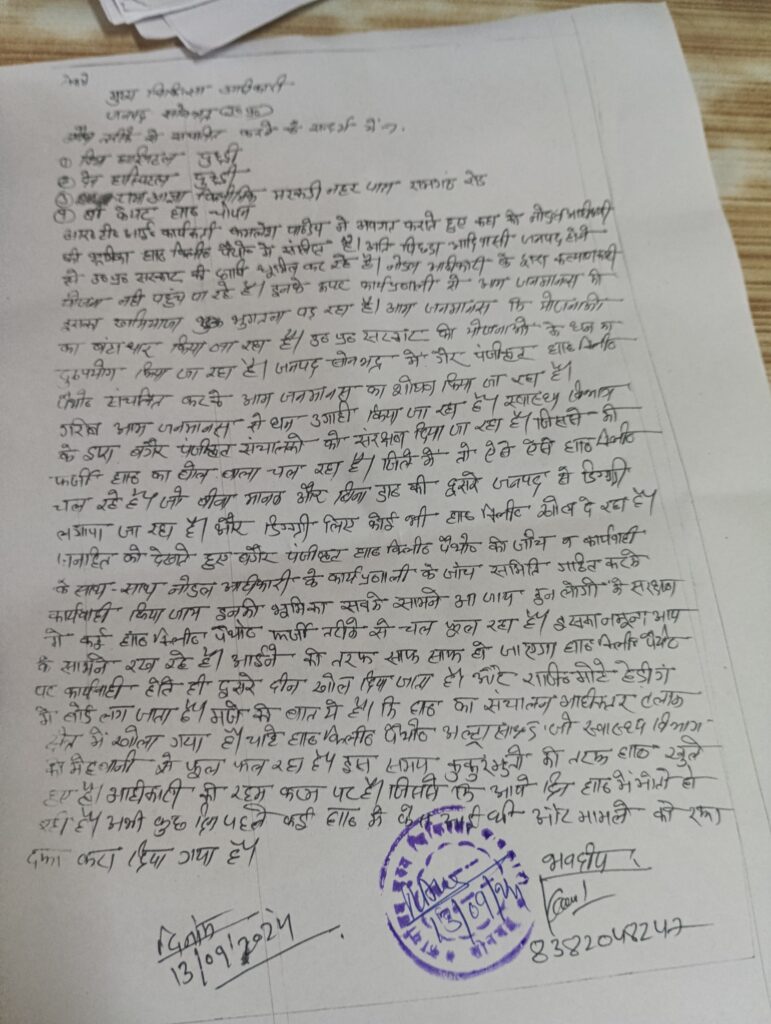 मुख्य चिकित्सा अधिकारी
जनपद सोनभद्र (उ०प्र०)
अवैध तरीके से संचालित करने के सन्दर्भ में।
① मिश्रा हास्पिटल दुद्धी
② हास्पिटल दुद्धी
③ मरकरी नहर पास रामगढ़ रोड
④ चोपन
आर टी आई कार्यकर्ता कमलेश पाण्डेय ने अवगत कराते हुए कहा की नोडल अधिकारी
की भूमिका हास्० क्लिनीक पैथोे० में संदिग्ध है। अति पिछड़ा आदिवासी जनपद होने
से उ०प्र० सरकार की छवि धूमिल कर रहे है। नोडल अधिकारी के द्वारा कल्याणकारी
नही पहुंच पा रहे है। इनके कपट कार्यप्रणाली से आम जनमानस को
इसका खामियाजा भुगतना पड़ रहा है। आम जनमानस कि योजनाओ
का बंटाधार किया जा रहा है। उ०प्र० सरकार की योजनाओ के धन का
दुरुपयोग किया जा रहा है। जनपद सोनभद्र में गैर पंजीकृत हास्० क्लिनीक
पैथो० संचालित करके आम जनमानस का शोषण किया जा रहा है।
गरीब आम जनमानस से धन उगाही किया जा रहा है। स्वास्थ्य विभाग
के द्वारा बगैर पंजीकृत संचालको को संरक्षण दिया जा रहा है। जिससे की
फर्जी हास्० का बोल बाला चल रहा है। जिले में तो ऐसे ऐसे हास्० क्लिनीक
चल रहे है। जो बीना मानक और बिना डा० की दुसरे जनपद से डिग्री
लगाया जा रहा है। और डिग्री लिए कोई भी हास्० क्लिनीक खोल दे रहा है।
जनहित को देखते हुए बगैर पंजीकृत हास्० क्लिनीक पैथो० की जाँच व कार्यवाही
के साथ-साथ नोडल अधिकारी के कार्यप्रणाली के जाँच समिति गठित करके
कार्यवाही किया जाय इनकी भूमिका सबके सामने आ जाय इन लोगो के संरक्षण
में कई हास्० क्लिनीक पैथो० फर्जी तरीके से चल रहा है। इसका नमूना आप
के सामने रख रहे है। आईने की तरफ साफ साफ हो जाएगा हास्० क्लिनीक पैथो०
पर कार्यवाही होते ही दुसरे दीन खोल दिया जाता है। और मोटे हेडींग
में बोर्ड लग जाता है। मजे की बात ये है। कि हास्० का संचालन अधीकतर
क्षेत्र में खोला गया है। चाहे हास्० क्लिनीक पैथो० अल्ट्रासाउण्ड जो स्वास्थ्य विभाग
की मेहरबानी से फूल फल रहा है। इस समय कुकुरमुत्तो की तरफ हास्० खुले
हुए है। अधीकारी की रहम करम पर है। जिससे कि आये दिन हास्० में मौते हो
रही है। अभी कुछ दिन पहले कई हास्० में केस आई थी और मामले को रफा
दफा करा दिया गया है।
भवदीय
8382048247
दिनांक
13/09/2024
13/09/24